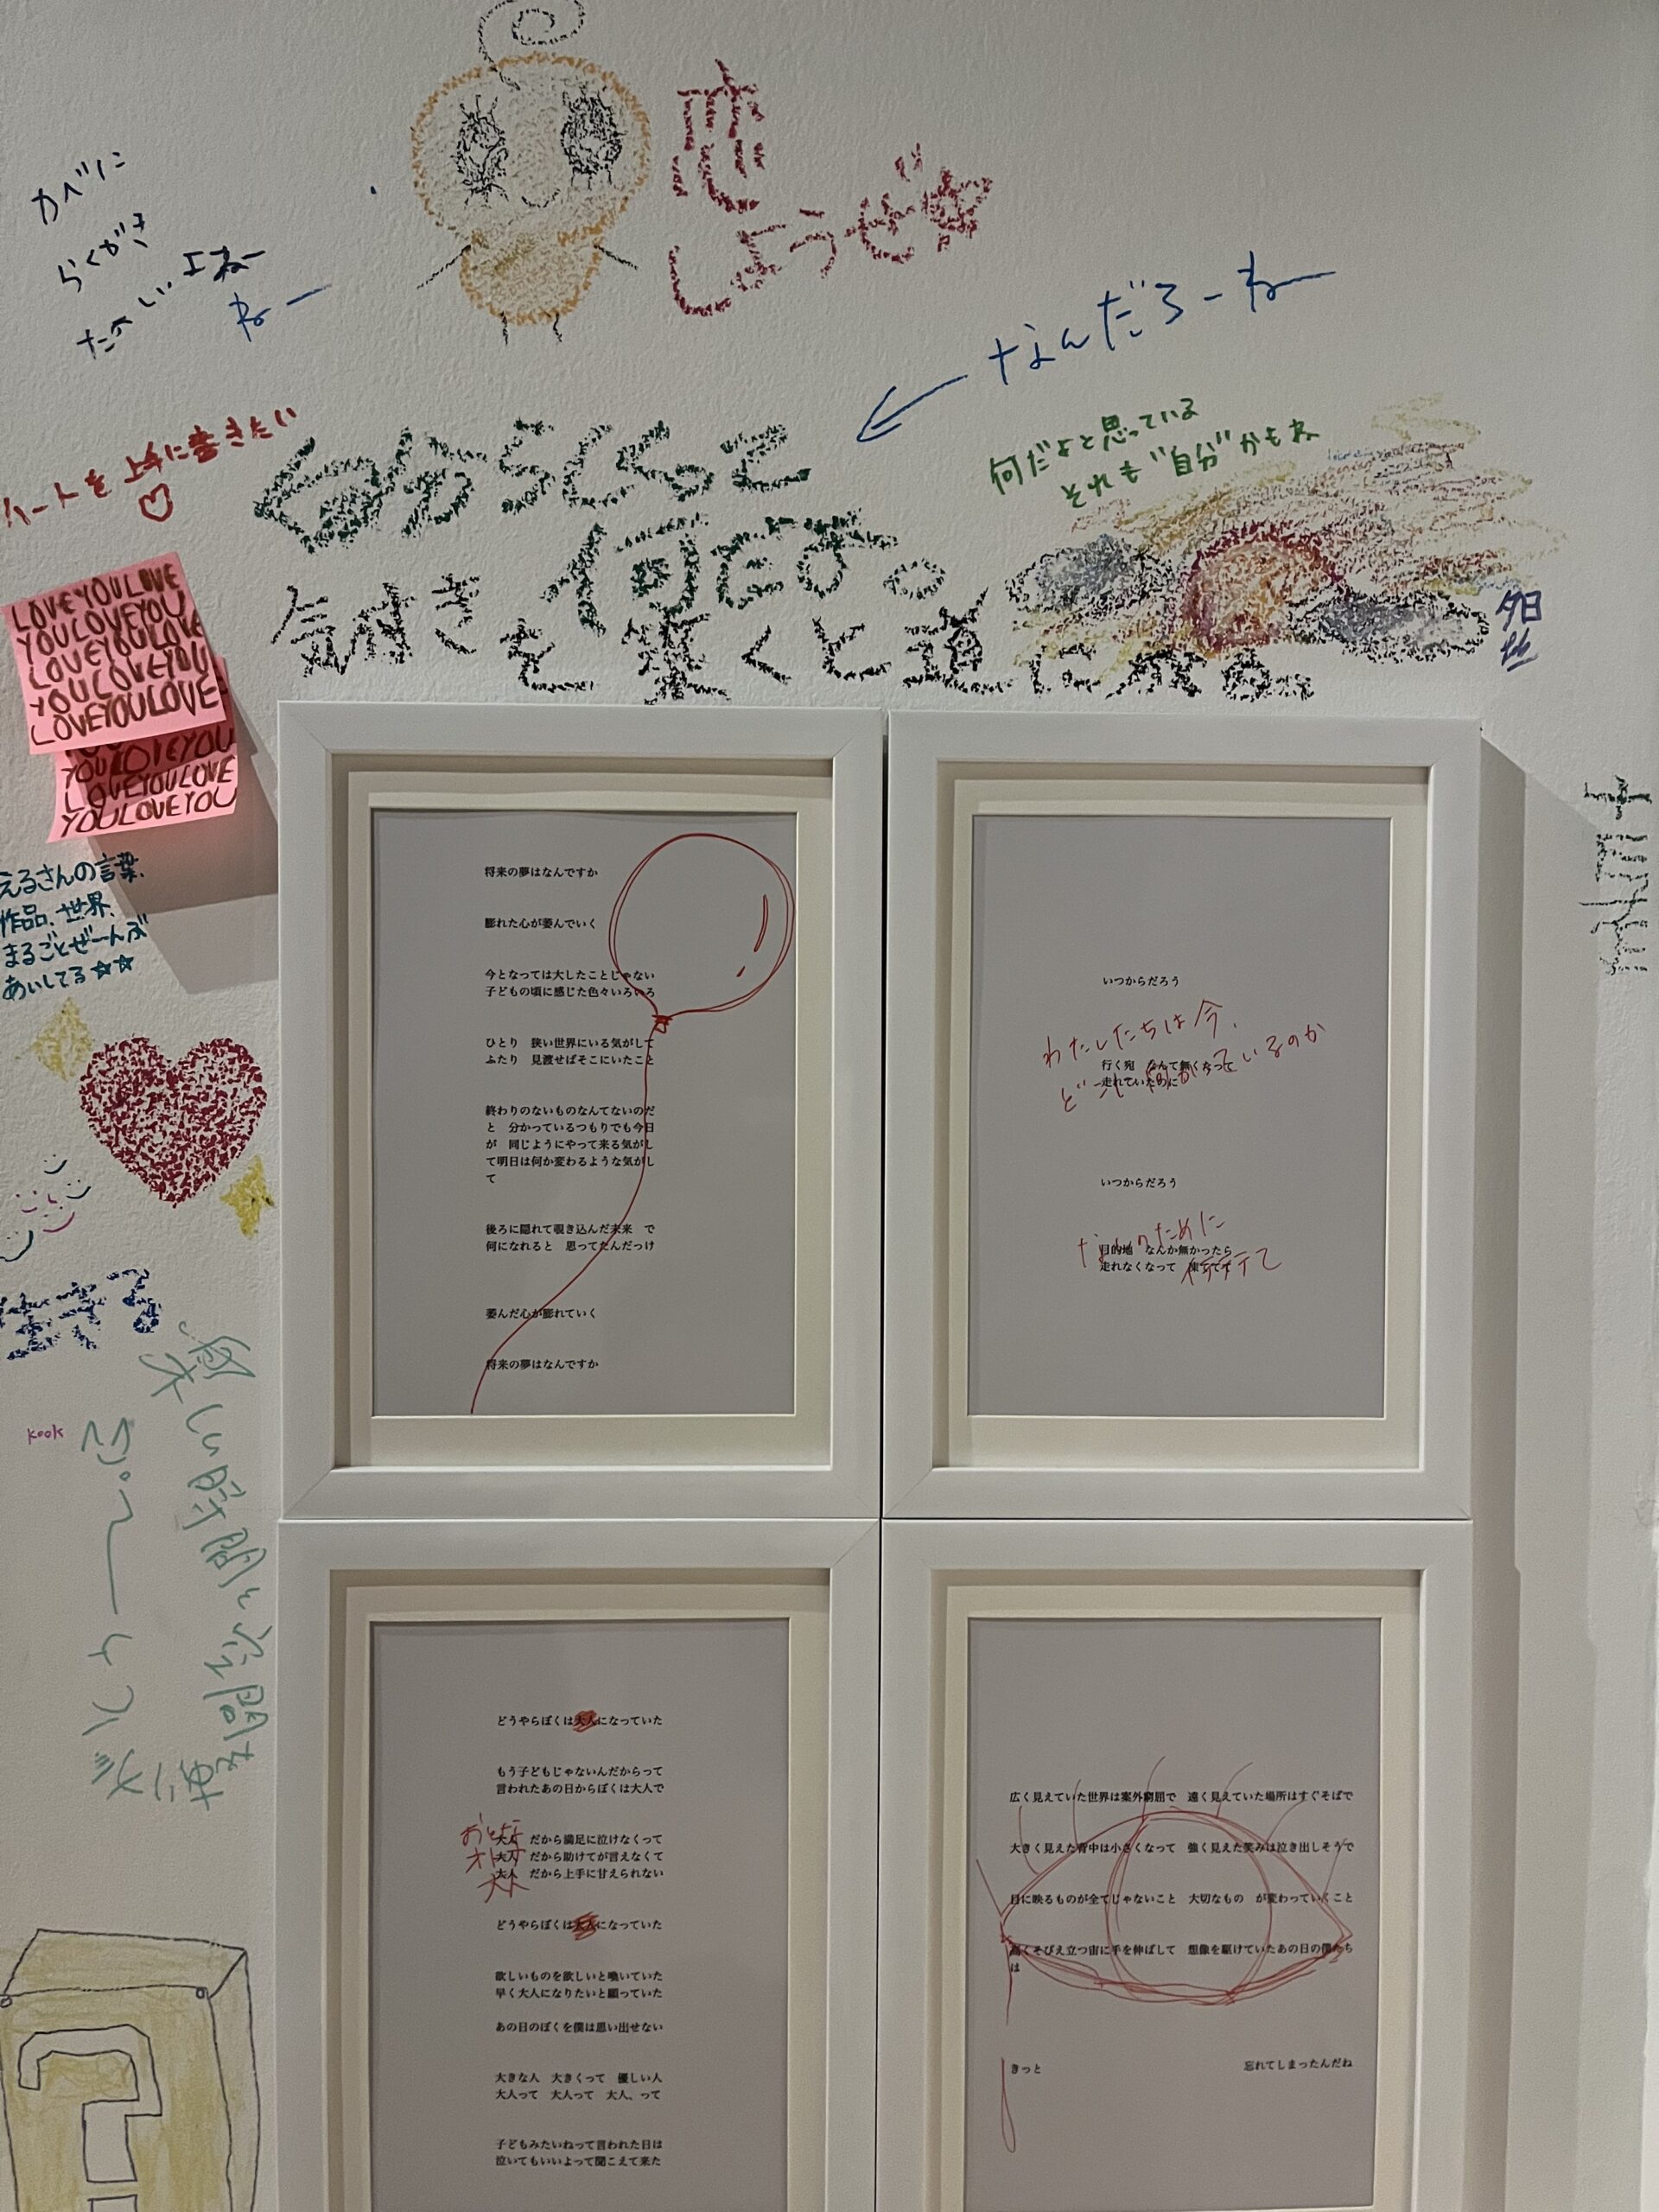 恋
しようぜ
かべに
らくがき
たのしいよねー
ねー
なんだろーね
ハートを上手に書きたい
自分らしさって
何だよ。
何だよと思っている
それも"自分"かもね
気付きを築くと道になる。
夕日
LOVEYOULOVE
YOULOVEYOU
LOVEYOULOVE
YOULOVEYOU
LOVEYOULOVE
YOULOVEYOU
LOVEYOULOVE
YOULOVEYOU
えるさんの言葉、
作品、世界、
まるごとぜーんぶ
あいしてる☆☆
生きる
kook
楽しい時間と空間を
将来の夢はなんですか
膨れた心が萎んでいく
今となっては大したことじゃない
子どもの頃に感じた色々いろいろ
ひとり　狭い世界にいる気がして
ふたり　見渡せばそこにいたこと
終わりのないものなんてないのだ
と　分かっているつもりでも今日
が　同じようにやって来る気がし
て明日は何か変わるような気がし
て
後ろに隠れて覗き込んだ未来　で
何になれると　思ってたんだっけ
萎んだ心が膨れていく
将来の夢はなんですか
いつからだろう
わたしたちは今、
どこに向かっているのか
行く宛　なんて無くたって
走れていたのに
いつからだろう
なんのために
目的地　なんか無かったら
走れなくなって
どうやらぼくは大人になっていた
もう子どもじゃないんだからって
言われたあの日からぼくは大人で
おとな
オトナ
大人
大人　だから満足に泣けなくって
大人　だから助けてが言えなくて
大人　だから上手に甘えられない
どうやらぼくは大人になっていた
欲しいものを欲しいと嘆いていた
早く大人になりたいと願っていた
あの日のぼくを僕は思い出せない
大きな人　大きくって　優しい人
大人って　大人って　大人、って
子どもみたいねって言われた日は
泣いてもいいよって聞こえて来た
広く見えていた世界は案外窮屈で　遠く見えていた場所はすぐそばで
大きく見えた背中は小さくなって　強く見えた笑みは泣き出しそうで
目に映るものが全てじゃないこと　大切なもの　が変わっていくこと
高くそびえ立つ宙に手を伸ばして　想像を駆けていたあの日の僕たち
は
きっと　忘れてしまったんだね